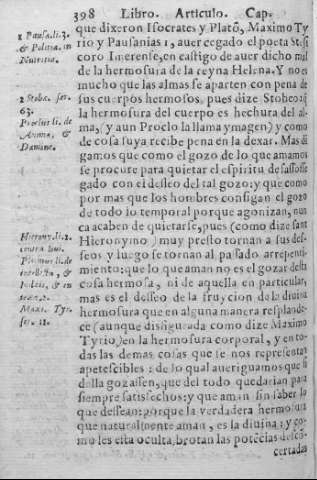 398 Libro. Articulo. Cap.
que dixeron Isocrates y Platõ, Maximo Ty
rio y Pausanias 1, auer cegado el poeta Stesi
coro Imerense, en castigo de auer dicho mal
de la hermosura de la reyna Helena. Y no es
mucho que las almas se aparten con pena de
sus cuerpos hermosos, pues dize Stobeo 2 q̃
la hermosura del cuerpo es hechura del al-
ma, (y aun Proclo la llama ymagen) y como
de cosa suya recibe pena en la dexar. Mas di
gamos que como el gozo de lo que amamos
se procure para quietar el espiritu desassosse
gado con el desseo del tal gozo: y que como
por mas que los hombres consigan el gozo
de todo lo temporal porque agonizan, nun
ca acaben de quietarse, pues (como dize sant
Hieronymo) muy presto tornan a sus des-
seos y luego se tornan al passado arrepenti-
miento: que lo que aman no es el gozar desta
cosa hermosa, ni de aquella en particular,
mas es el desseo de la fruycion de la diuina
hermosura que en alguna manera resplande-
ce (aunque dissigurada como dize Maximo
Tyrio) en la hermosura corporal, y en to-
das las demas cosas que se nos representan
apetescibles: de lo qual aueriguamos que si
della gozassen, que del todo quedarian para
siempre satisfechos: y que aman sin saber lo
que dessean: porque la verdadera hermosura
que naturalmente aman, es la diuina: y co-
mo les esta oculta, brotan las potẽcias desco
certadas
1 Pausa. li. 3.
& Politia. in
2 Stobæ. ser.
63.
Proclus li. de
Anima, &
Dæmone.
Hierony. li. 2.
Maxi. Tyr.
ser. 11.